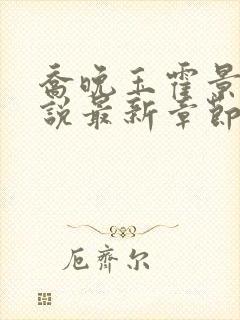 喬晚玉霍景
說最新章節
厄齊尔